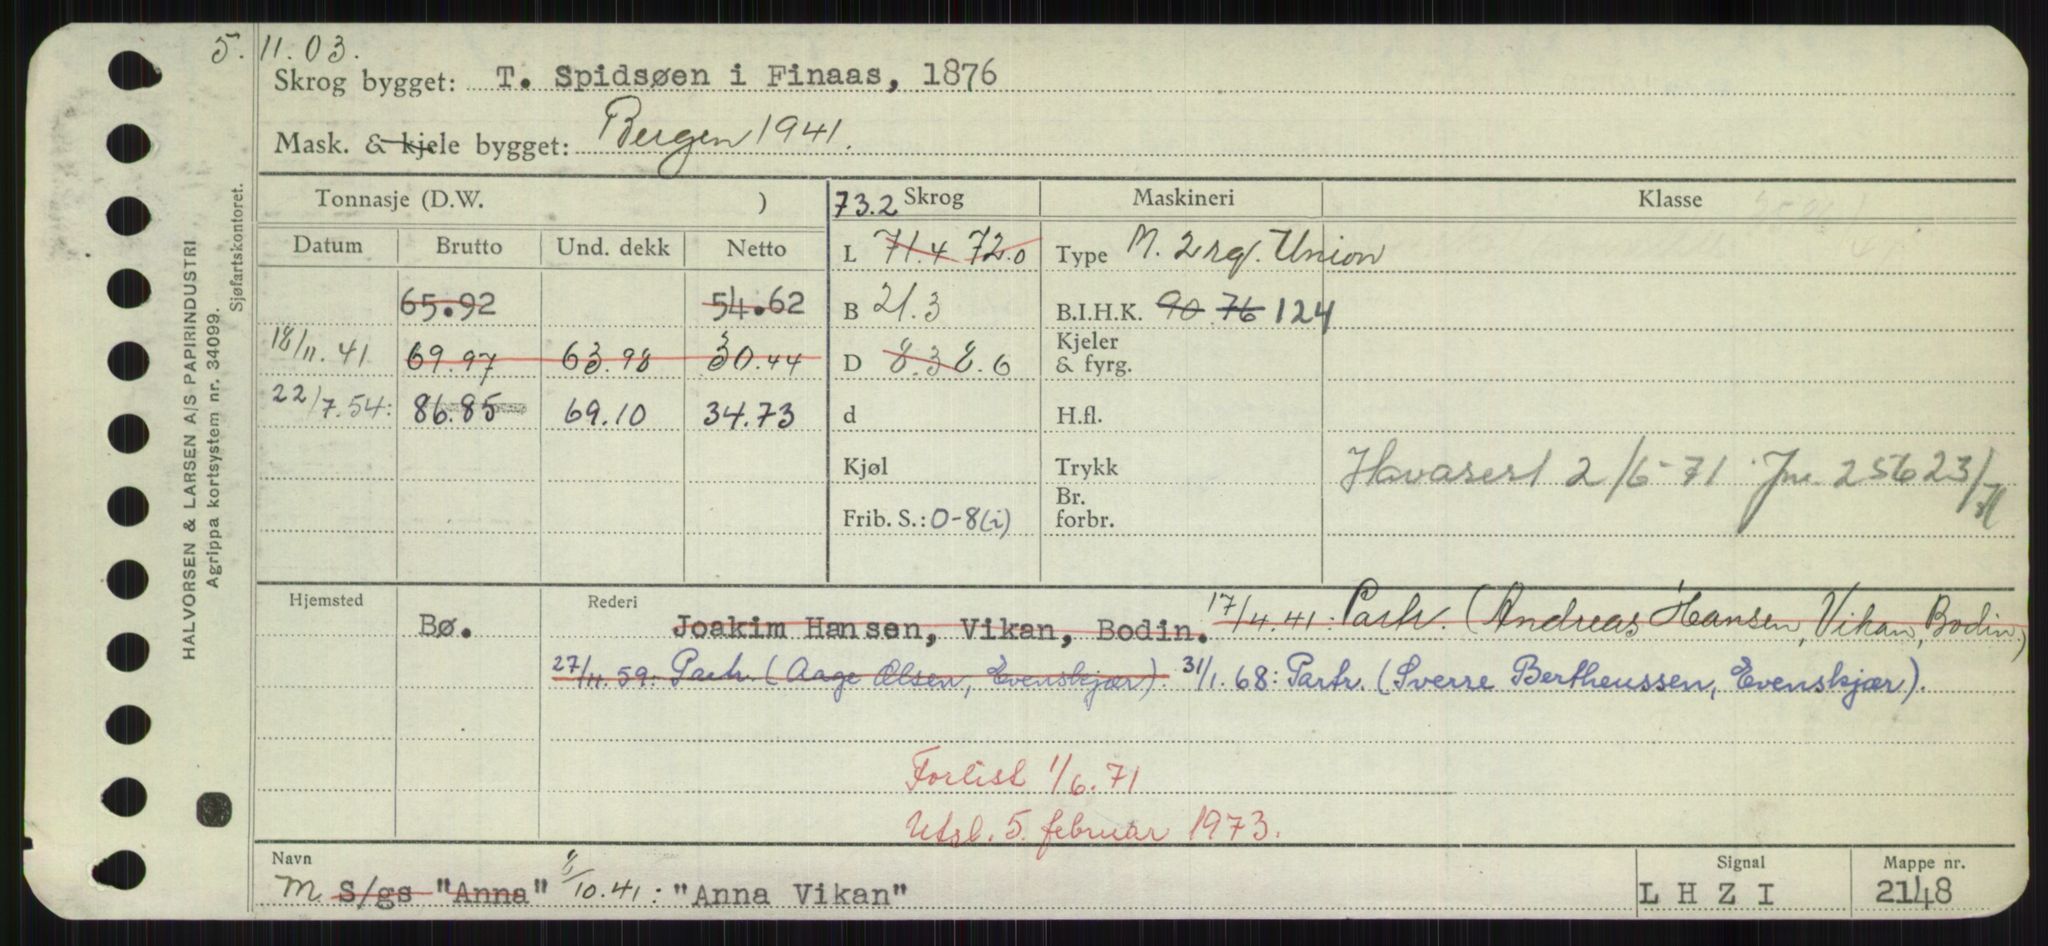 5. 11.03.
Skrog bygget: T. Spidsøen i Finaas, 1876
Mask. & kjele bygget: Bergen 1941.
Tonnasje (D.W. ) 73.2 Skrog Maskineri Klasse
Datum Brutto Und. dekk Netto L 71.4 72.0 Type M. 2 rg. Union
65.92 54.62 B 21.3 B.I.H.K. 90 76 124
18/11.41 69.97 63.98 30.44 D 8.3 8.6 Kjeler & fyrg.
22/7.54: 86.85 69.10 34.73 d H.fl.
Kjøl Trykk Havarert 2/6-71 Jnr. 25623/71
Frib. S.: 0-8(i) Br. forbr.
Hjemsted Rederi
Bø. Joakim Hansen, Vikan, Bodin. 17/4.41: Partr. (Andreas Hansen, Vikan, Bodin.)
27/11.59: Partr. (Aage Olsen, Evenskjær). 31/1.68: Partr. (Sverre Bertheussen, Evenskjær).
Forlist 1/6.71
Utsl. 5. februar 1973.
Navn Signal Mappe nr.
M S/gs "Anna" 8/10.41: "Anna Vikan" L H Z I 2148
HALVORSEN & LARSEN A/S PAPIRINDUSTRI
Agrippa kortsystem nr. 34099.
Sjøfartskontoret.